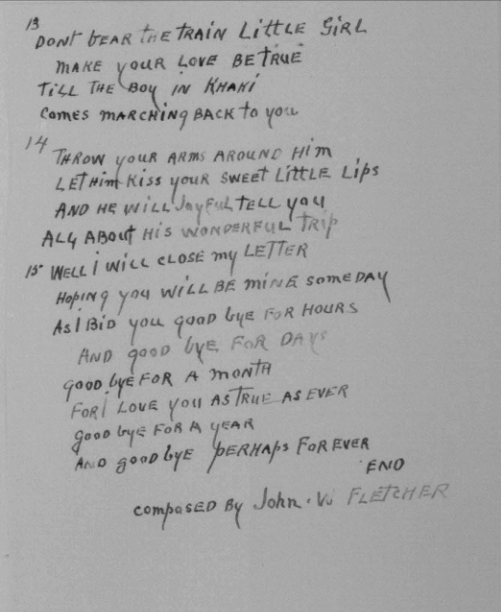 13
DONT bEAR tHE TRAIN LittLE GiRL
MAKE YOUR LOVE BE TRUE
TiLL THE Boy iN KHAKi
COMES MARCHiNg BACK to you
14
THROW your ARMS AROUND HiM
LET HiM KiSS youR SWEET LittLE Lips
AND HE WiLL JoyFuL tELL you
ALL ABOut HiS WONDERFUL TRip
15 WELL i WiLL CLOSE my LETTER
Hoping you WiLL BE miNE someDAY
AS I BiD you good bye FOR HOURS
AND good bye FOR DAYS
good bye FOR A moNtH
FOR I LOVE you AS TRUE AS EVER
good bye FOR A yEAR
AND good bye pERHAps FOREVER
END
composED By John. W FLETCHER